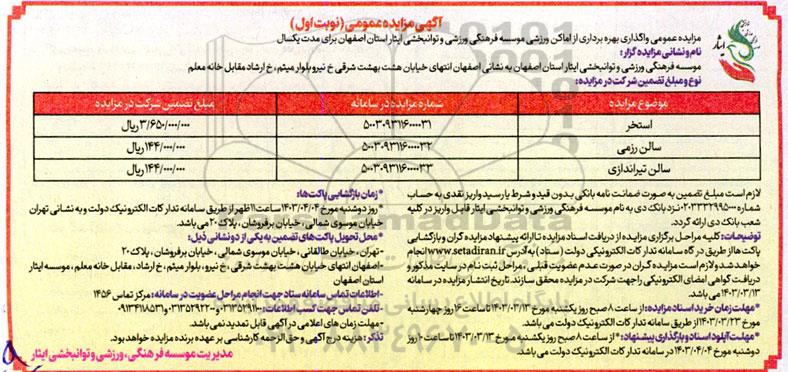 آگهی مزایده عمومی (نوبت اول)
مزایده عمومی واگذاری بهره برداری از اماکن ورزشی موسسه فرهنگی ورزشی و توانبخشی ایثار استان اصفهان برای مدت یکسال
نام و نشانی مزایده گزار:
موسسه فرهنگی ورزشی و توانبخشی ایثار استان اصفهان به نشانی اصفهان انتهای خیابان هشت بهشت شرقی خ نیرو بلوار میثم، خ ارشاد مقابل خانه معلم
نوع و مبلغ تضمین شرکت در مزایده:
موضوع مزایده شماره مزایده در سامانه مبلغ تضمین شرکت در مزایده
استخر ۵۰۰۳۰۹۳۱۱۶۰۰۰۰۳۱ ۳/۶۵۰/۰۰۰/۰۰۰ ریال
سالن رزمی ۵۰۰۳۰۹۳۱۱۶۰۰۰۰۳۲ ۱۴۴/۰۰۰/۰۰۰ ریال
سالن تیراندازی ۵۰۰۳۰۹۳۱۱۶۰۰۰۰۳۳ ۱۴۴/۰۰۰/۰۰۰ ریال
لازم است مبلغ تضمین به صورت ضمانت نامه بانکی بدون قید و شرط یا رسید واریز نقدی به حساب
شماره ۰۲۰۳۳۳۲۹۹۵۰۰۰ نزد بانک دی به نام موسسه فرهنگی ورزشی و توانبخشی ایثار قابل واریز در کلیه
شعب بانک دی ارائه گردد.
توضیحات: کلیه مراحل برگزاری مزایده از دریافت اسناد مزایده تا ارائه پیشنهاد مزایده گران و بازگشایی
پاکت‌ها از طریق درگاه سامانه تدارکات الکترونیکی دولت (ستاد) به آدرس www.setadiran.ir انجام
خواهد شد و لازم است مزایده گران در صورت عدم عضویت قبلی، مراحل ثبت نام در سایت مذکور و
دریافت گواهی امضای الکترونیکی را جهت شرکت در مزایده محقق سازند. تاریخ انتشار مزایده در سامانه
۱۴۰۳/۰۳/۱۳ می باشد.
*مهلت زمان خرید اسناد مزایده: از ساعت ۸ صبح روز یکشنبه مورخ ۱۴۰۳/۰۳/۱۳ تا ساعت ۱۶ روز چهارشنبه
مورخ ۱۴۰۳/۰۳/۲۳ از طریق سامانه تدارکات الکترونیک دولت می باشد.
*مهلت آپلود اسناد و بارگذاری پیشنهاد: از ساعت ۸ صبح روز یکشنبه مورخ ۱۴۰۳/۰۳/۱۳ تا ساعت ۱۰ روز
دوشنبه مورخ ۱۴۰۳/۰۴/۰۴ در سامانه تدارکات الکترونیک دولت می باشد.
*زمان بازگشایی پاکت‌ها:
*روز دوشنبه مورخ ۱۴۰۳/۰۴/۰۴ ساعت ۱۱ ظهر از طریق سامانه تدارکات الکترونیک دولت و به نشانی تهران
خیابان موسوی شمالی، خیابان برفروشان، پلاک ۲۰ می باشد.
*محل تحویل پاکت‌های تضمین به یکی از دو نشانی ذیل:
-تهران، خیابان طالقانی، خیابان موسوی شمالی، خیابان برفروشان، پلاک ۲۰
-اصفهان انتهای خیابان هشت بهشت شرقی، خ نیرو، بلوار میثم، خ ارشاد، مقابل خانه معلم، موسسه ایثار
استان اصفهان
-اطلاعات تماس سامانه ستاد جهت انجام مراحل عضویت در سامانه: مرکز تماس ۱۴۵۶
تلفن تماس جهت کسب اطلاعات: ۰۳۱۳۵۲۹۱۱۰۰-۰۳۱۳۵۲۹۲۲۰۰ و ۰۹۱۳۴۱۱۸۵۳۱
-مهلت زمان های اعلامی در آگهی قابل تمدید نمی باشد.
تذکر: هزینه درج آگهی و حق الزحمه کارشناسی بر عهده برنده مزایده خواهد بود.
مدیریت موسسه فرهنگی، ورزشی و توانبخشی ایثار